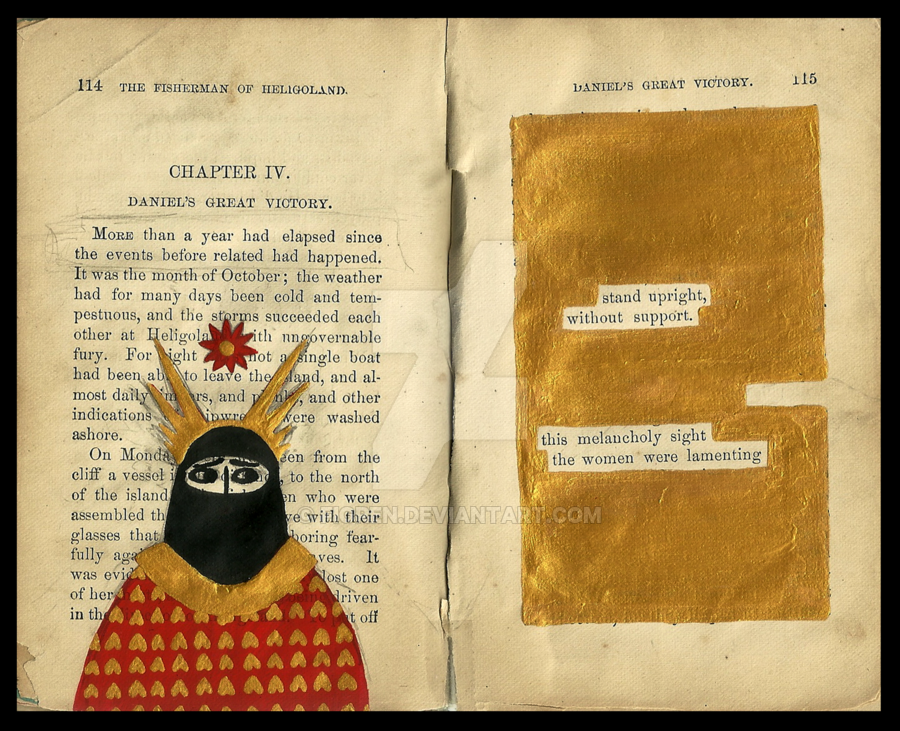 114 THE FISHERMAN OF HELIGOLAND.
CHAPTER IV.
DANIEL'S GREAT VICTORY.
MORE than a year had elapsed since
the events before related had happened.
It was the month of October; the weather
had for many days been cold and tem-
pestuous, and the storms succeeded each
other at Heligola ith ungovernable
fury. For ight not a single boat
had been ab to leave the land, and al-
most daily rs, and pl ks, and other
indications ipwre were washed
ashore.
On Monda een from the
cliff a vessel to the north
of the island en who were
assembled th ve with their
glasses that boring fear-
fully aga ves. It
was evid lost one
of her driven
in the put off
DANIEL'S GREAT VICTORY. 115
stand upright,
without support.
this melancholy sight
the women were lamenting